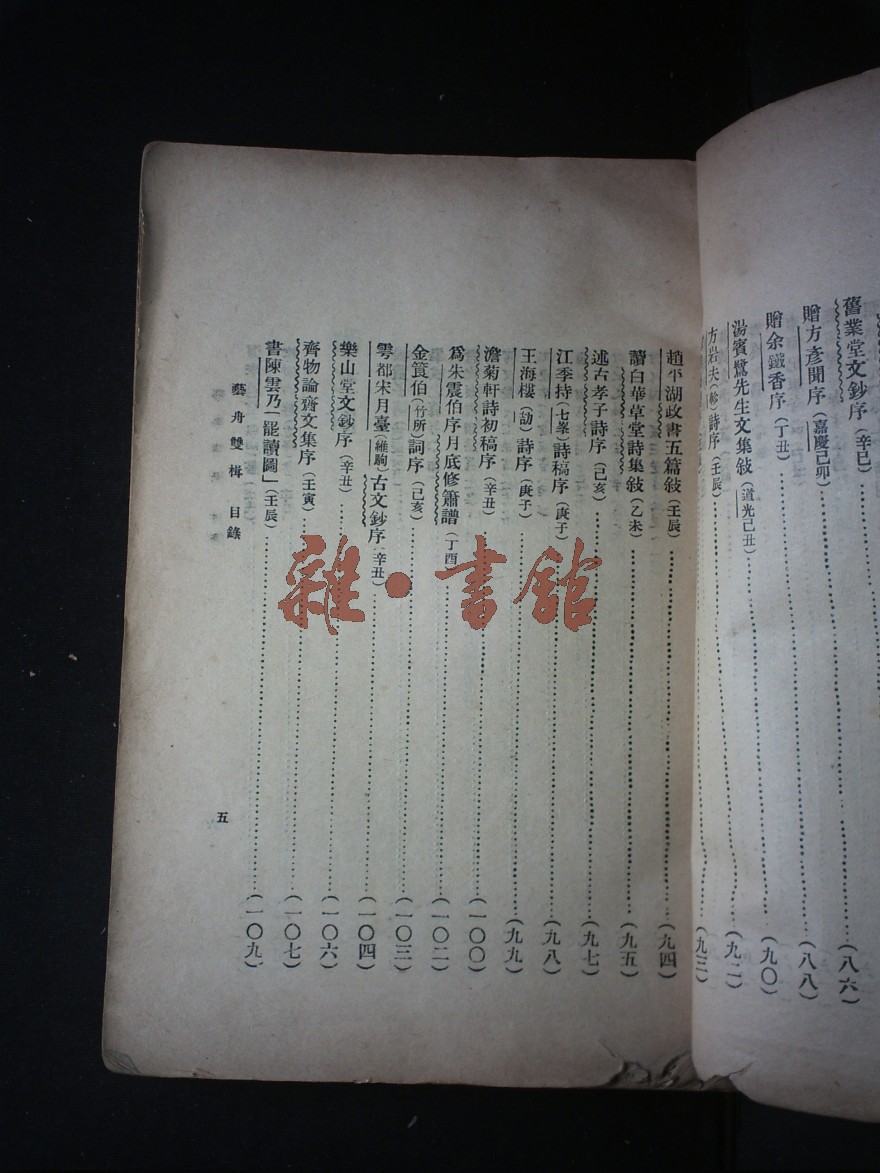 舊業堂文鈔序(辛巳)……(八六)
贈方彥聞序(嘉慶己卯)……(八八)
贈余鐵香序(丁丑)……(九〇)
湯賓鷺先生文集敍(道光己丑)……(九二)
方岩夫詩序(壬辰)……
趙平湖政書五篇敍(壬辰)……(九四)
讀白華草堂詩集敍(乙未)……(九五)
述古孝子詩序(己亥)……(九七)
江季持(七峯)詩稿序(庚子)……(九八)
王海樓(劼)詩序(庚子)……(九九)
澹菊軒詩初稿序(辛丑)……(一〇〇)
爲朱震伯序月底修簫譜(丁酉)……(一〇二)
金筤伯(竹所)詞序(己亥)……(一〇三)
雩都宋月臺(維駒)古文鈔序(辛丑)……(一〇四)
樂山堂文鈔序(辛丑)……(一〇六)
齊物論齋文集序(壬寅)……(一〇七)
書陳雲乃「罷讀圖」(壬辰)……(一〇九)
藝舟雙楫 目錄
五
雜·書館